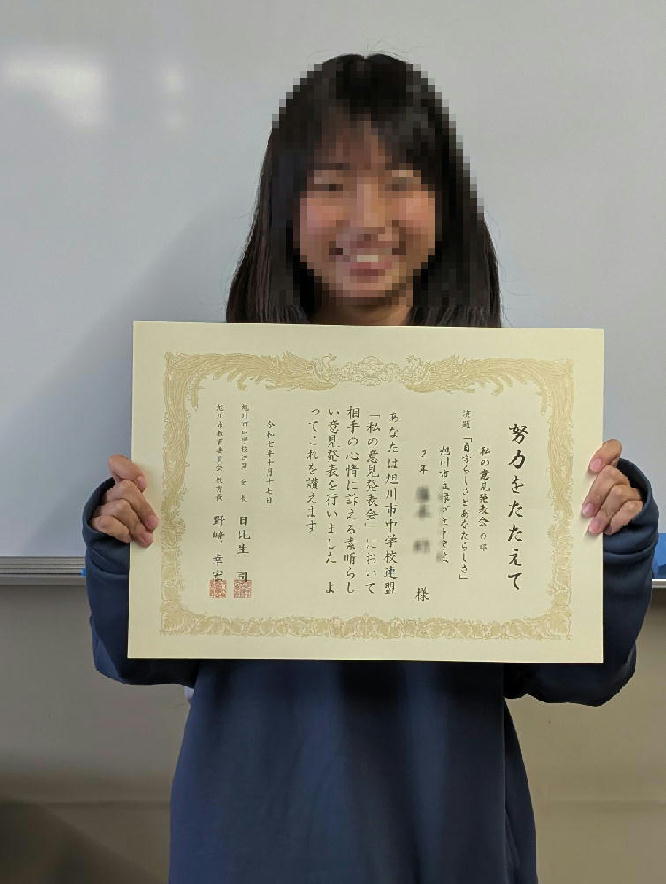 努力をたたえて
私の意見発表会の部
演題「自分らしさとあなたらしさ」
旭川市立
2年
様
あなたは旭川市中学校連盟
「私の意見発表会」において
相手の心情に訴える素晴らし
い意見発表を行いました よ
ってこれを讃えます
令和七年十月十七日
旭川市中学校連盟 会長 日比生 司
旭川市教育委員会 教育長 野﨑 幸宏